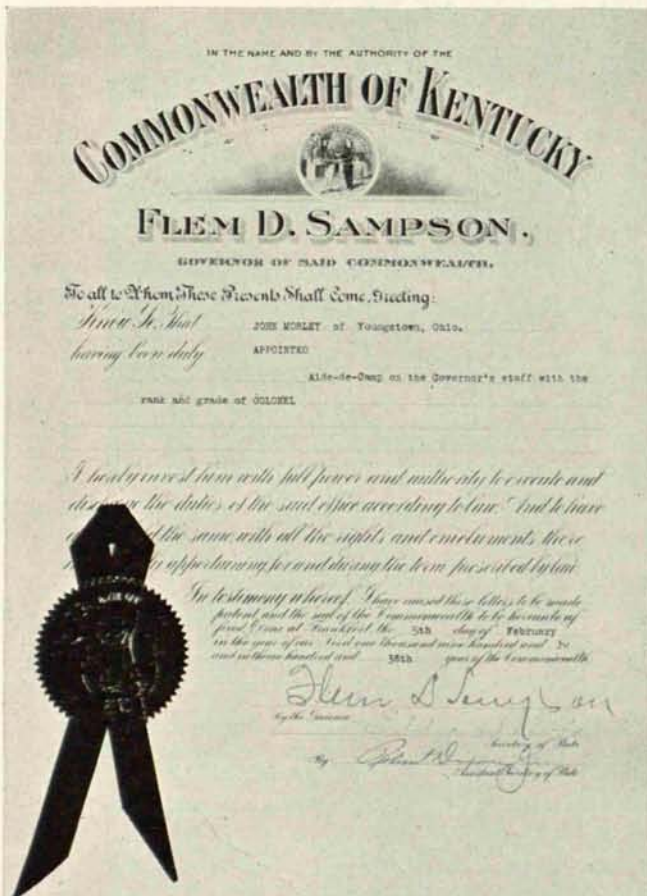 IN THE NAME AND BY THE AUTHORITY OF THE
COMMONWEALTH OF KENTUCKY
FLEM D. SAMPSON,
GOVERNOR OF SAID COMMONWEALTH.
To all to Whom These Presents Shall Come, Greeting:
Know Ye, That JOHN MORLEY of Youngstown, Ohio.
having been duly APPOINTED
Aide-de-Camp on the Governor's staff with the
rank and grade of COLONEL
I hereby invest him with full power and authority to execute and
discharge the duties of the said office according to law. And to have
and the same, with all the rights and emoluments there
appertaining for and during the term prescribed by law.
In testimony whereof, I have caused these letters to be made
patent, and the seal of the Commonwealth to be hereunto af
fixed. Done at Frankfort, the 5th day of February
in the year of our Lord one thousand nine hundred and
and in the one hundred and 38th year of the Commonwealth
Flem D Sampson
By the Governor
Secretary of State
By
Assistant Secretary of State